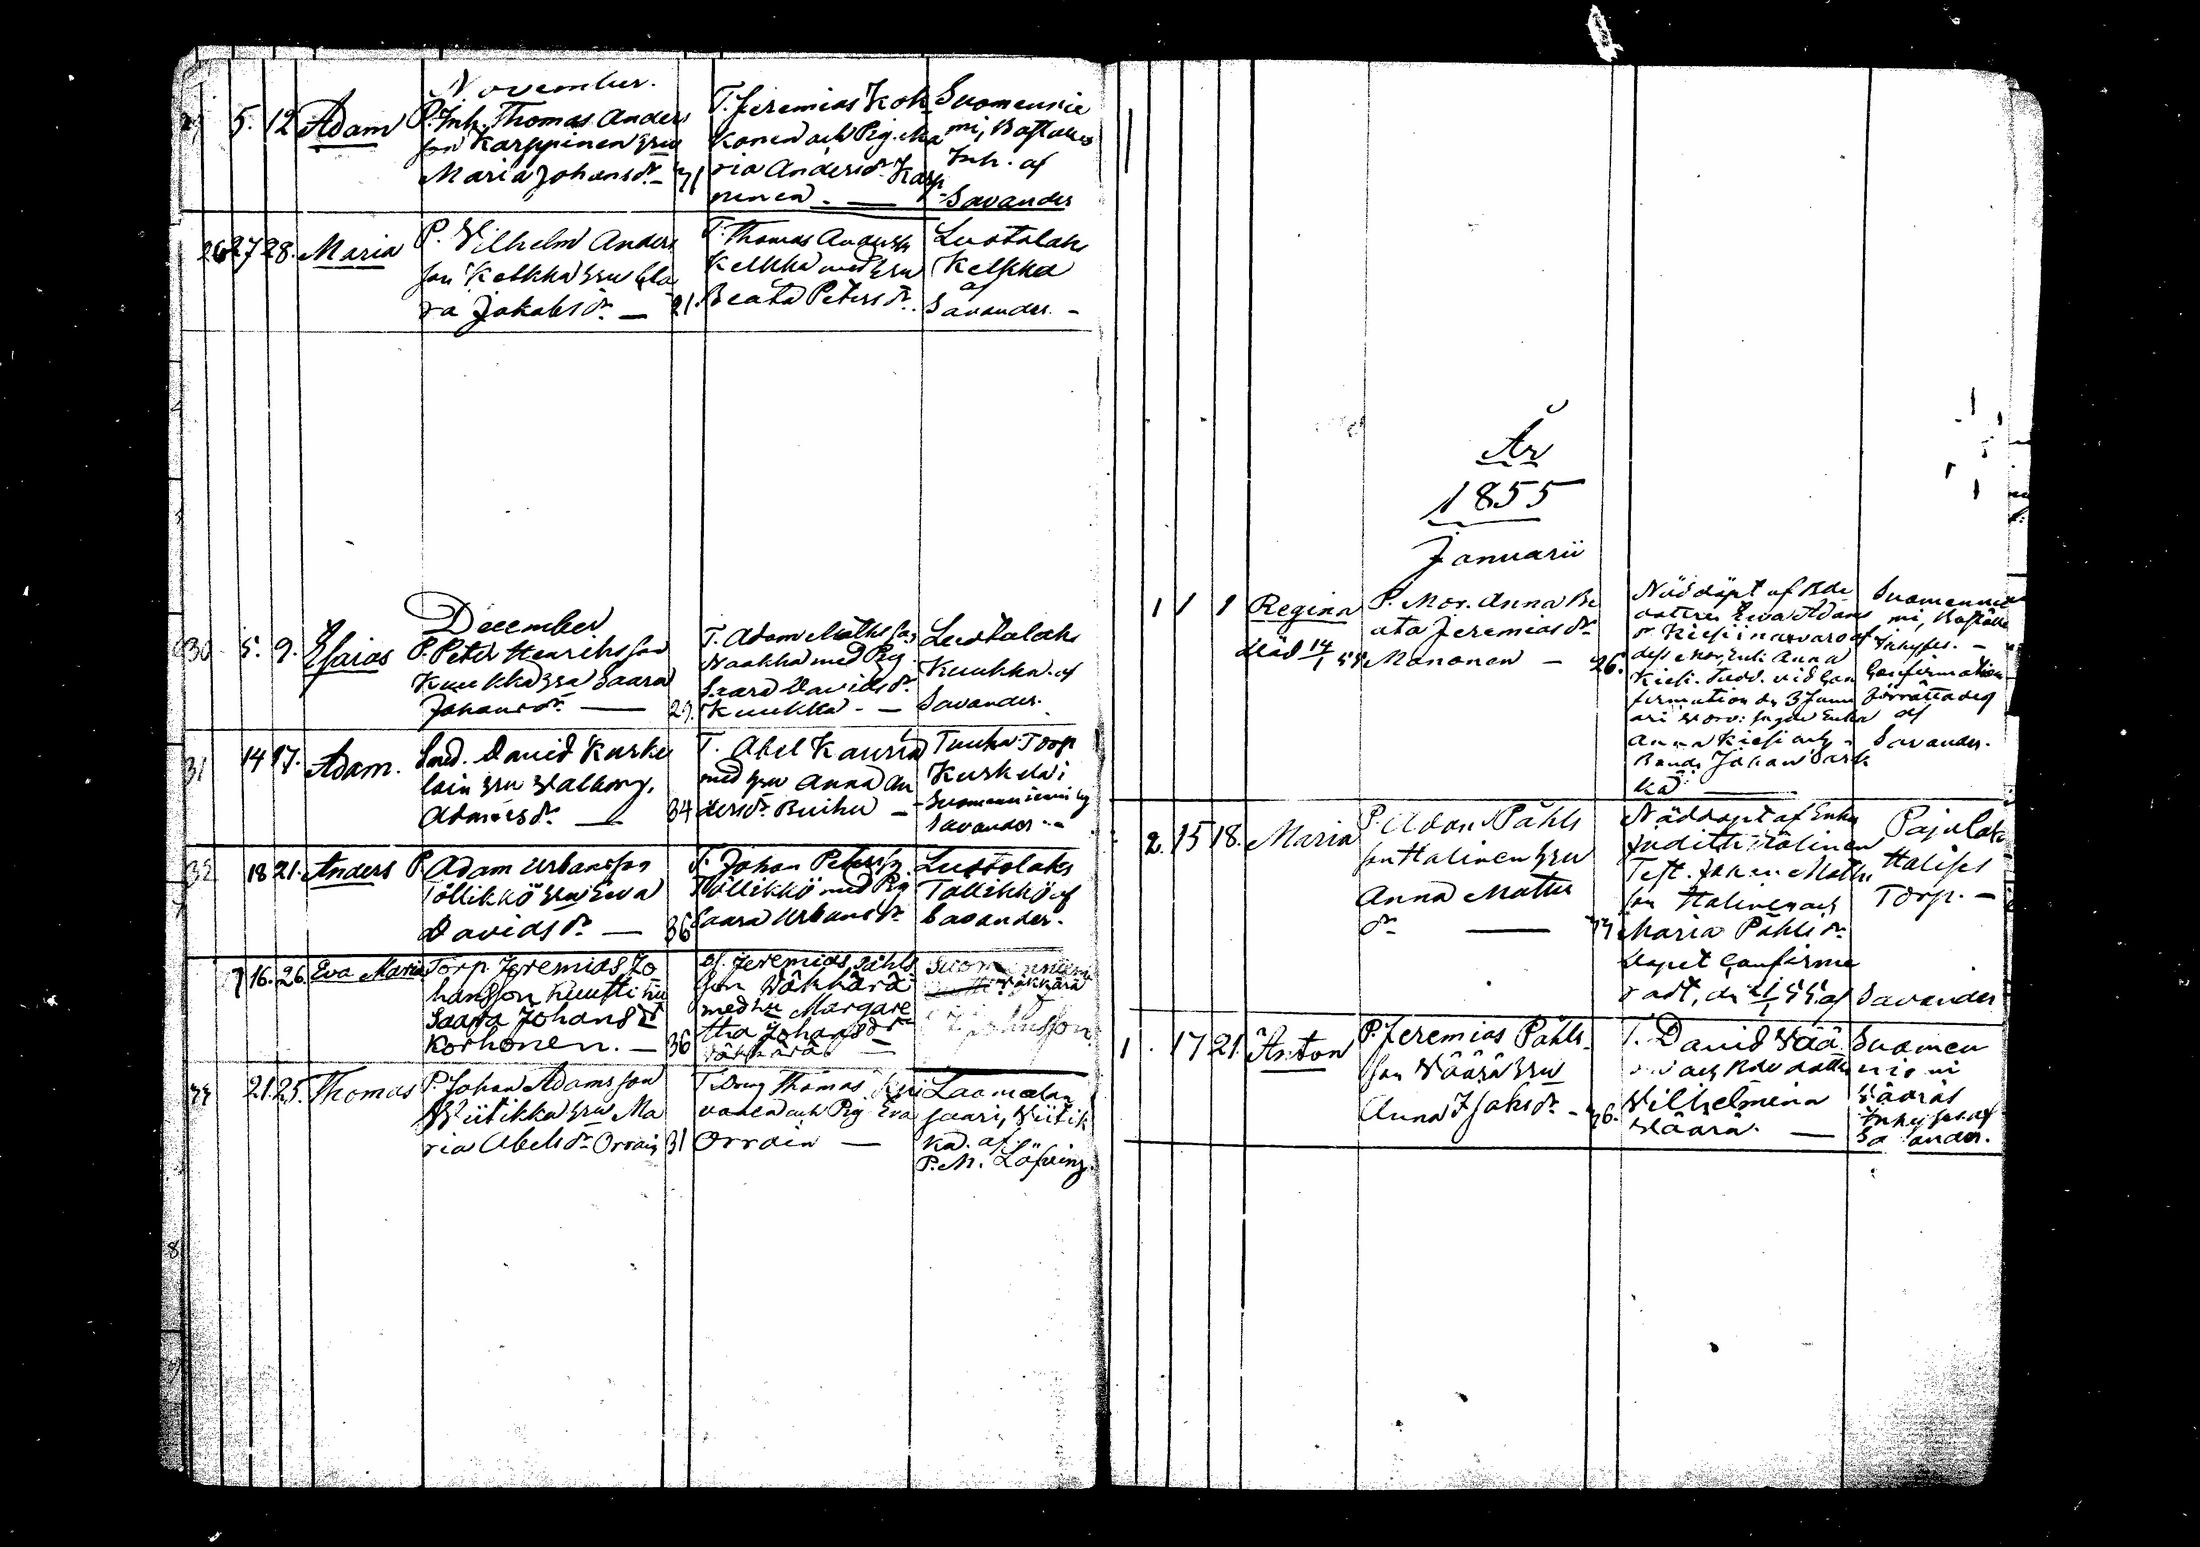 November.
5. 12 Adam P. Inh. Thomas Anders
son Karppinen hru
Maria Johansdr. — 31
T. Jeremias Kok
konen och Pig. Ma
ria Andersdr. Karp
pinen. —
Suomennie
mi, Baftukes
Inh. af
Savander
26 27 28. Maria P. Vilhelm Anders
son Kelkka hru Cla
ra Jakobsdr. — 21.
T. Thomas Anderss
Kelkka med hru
Beata Petersdr.
Luotolaks
Kelkka
af
Savander. -
December
30 5. 9. Esaias P. Peter Henriksson
Kuukka hru Saara
Johansdr. — 29.
T. Adam Mathsson
Naakka med Pig.
Saara Davidsdr.
Kuukka - —
Luotolaks
Kuukka. af
Savander.
31 14 17. Adam. Smed. David Kurke
lain hru Walborg.
Adamsdr. — 34
T. Abel Kauria
med hru Anna An
dersdr. —
Torp
Kurkelai
Suomenniemi af
Savander. -
32 18 21. Anders P. Adam Urbansson
Töllikkö hru Eva
Davidsdr. — 36
T. Johan Peterss.
Töllikkö med Pig
Saara Urbansdr.
Luotolaks
Töllikkö af
Savander.
7 16. 26. Eva Maria Torp. Jeremias Jo
hansson Kuutti hu
Saara Johansdr
Korhonen. — 36
Jeremias Påhls
son Väkkärä
med hu Margare
tha Johansdr
Väkkärä —
Suomenniemi
Väkkärä
33 21. 25. Thomas P. Johan Adamsson
Wiitikka hru Ma
ria Abelsdr. Orrain 31
T. Dräng Thomas
vanen och Pig Eva
Orrain —
Laamalan
saari, Wiitik
ka. af
P. M. Löfving.
År
1855
Januarii
1 1 1 Regina P. Mor. Anna Be
ata Jeremiasdr.
död 14/1 55 Manonen — 26.
Nöddöpt af Bde
dottren Eva Adams
dr Kiesi i narvaro af
dess Mor, Enk. Anna
Kiesi. Fadd. vid Con
firmation d. 3 Janu
ari voro: Enka
Anna Kiesi och
Bonde Johan Park
ka —
Suomennie
mi,
Inhyses. —
Confirmation
förrättades
af
Savander.
2. 15 18. Maria P. Adam Påhls
son Halinen hru
Anna Matts
dr. —
Nöddöpt af Enka
Judith Halinen
Test. Johan Matts
son Halinen och
Maria Påhlsdr.
dopet Confirme
radt, d. 21/1 55. af Savander
Pajulak
Halises
Torp. —
1. 17 21. Anton P. Jeremias Påhls
son Väärä hru
Anna Isaksdr. - 36.
T. David Vää
rä och Bde dotter
Vilhelmina
Väärä. —
Suomen
niemi
Wääräs
Inhyses af
Savander.